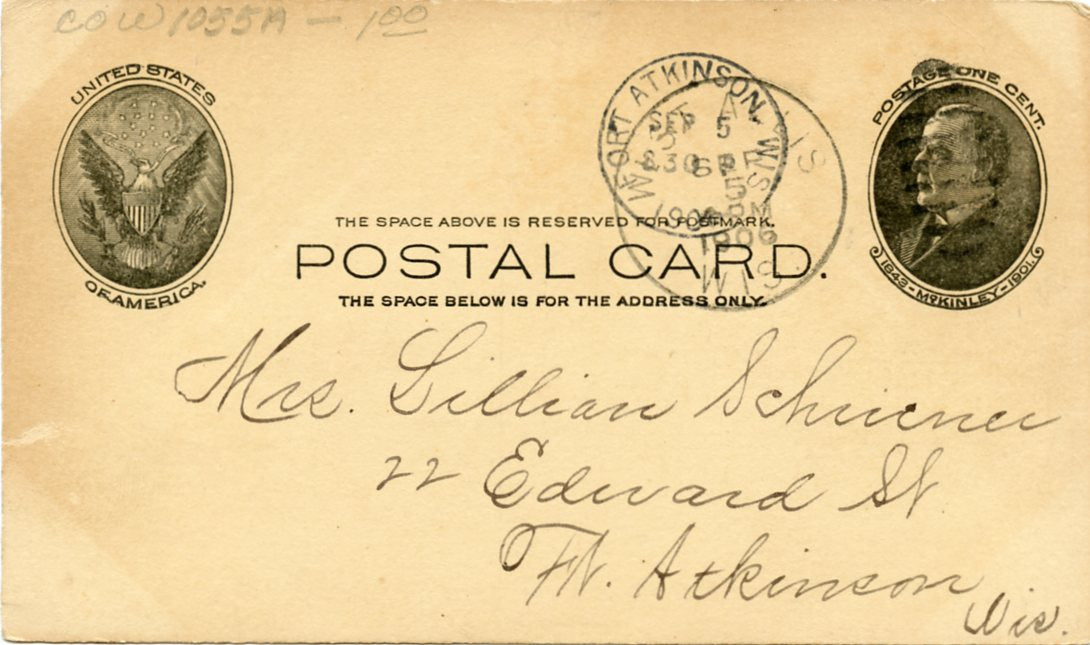 COW1055A — 1 00
UNITED STATES
OF AMERICA.
FORT ATKINSON, WIS.
SEP 5
230 P
1906
SEP
5
PM
1906
WIS
POSTAGE ONE CENT.
1843-McKINLEY-1901.
THE SPACE ABOVE IS RESERVED FOR POSTMARK.
POSTAL CARD.
THE SPACE BELOW IS FOR THE ADDRESS ONLY.
Mrs. Lillian Schreiner
22 Edward St
Ft. Atkinson
Wis.